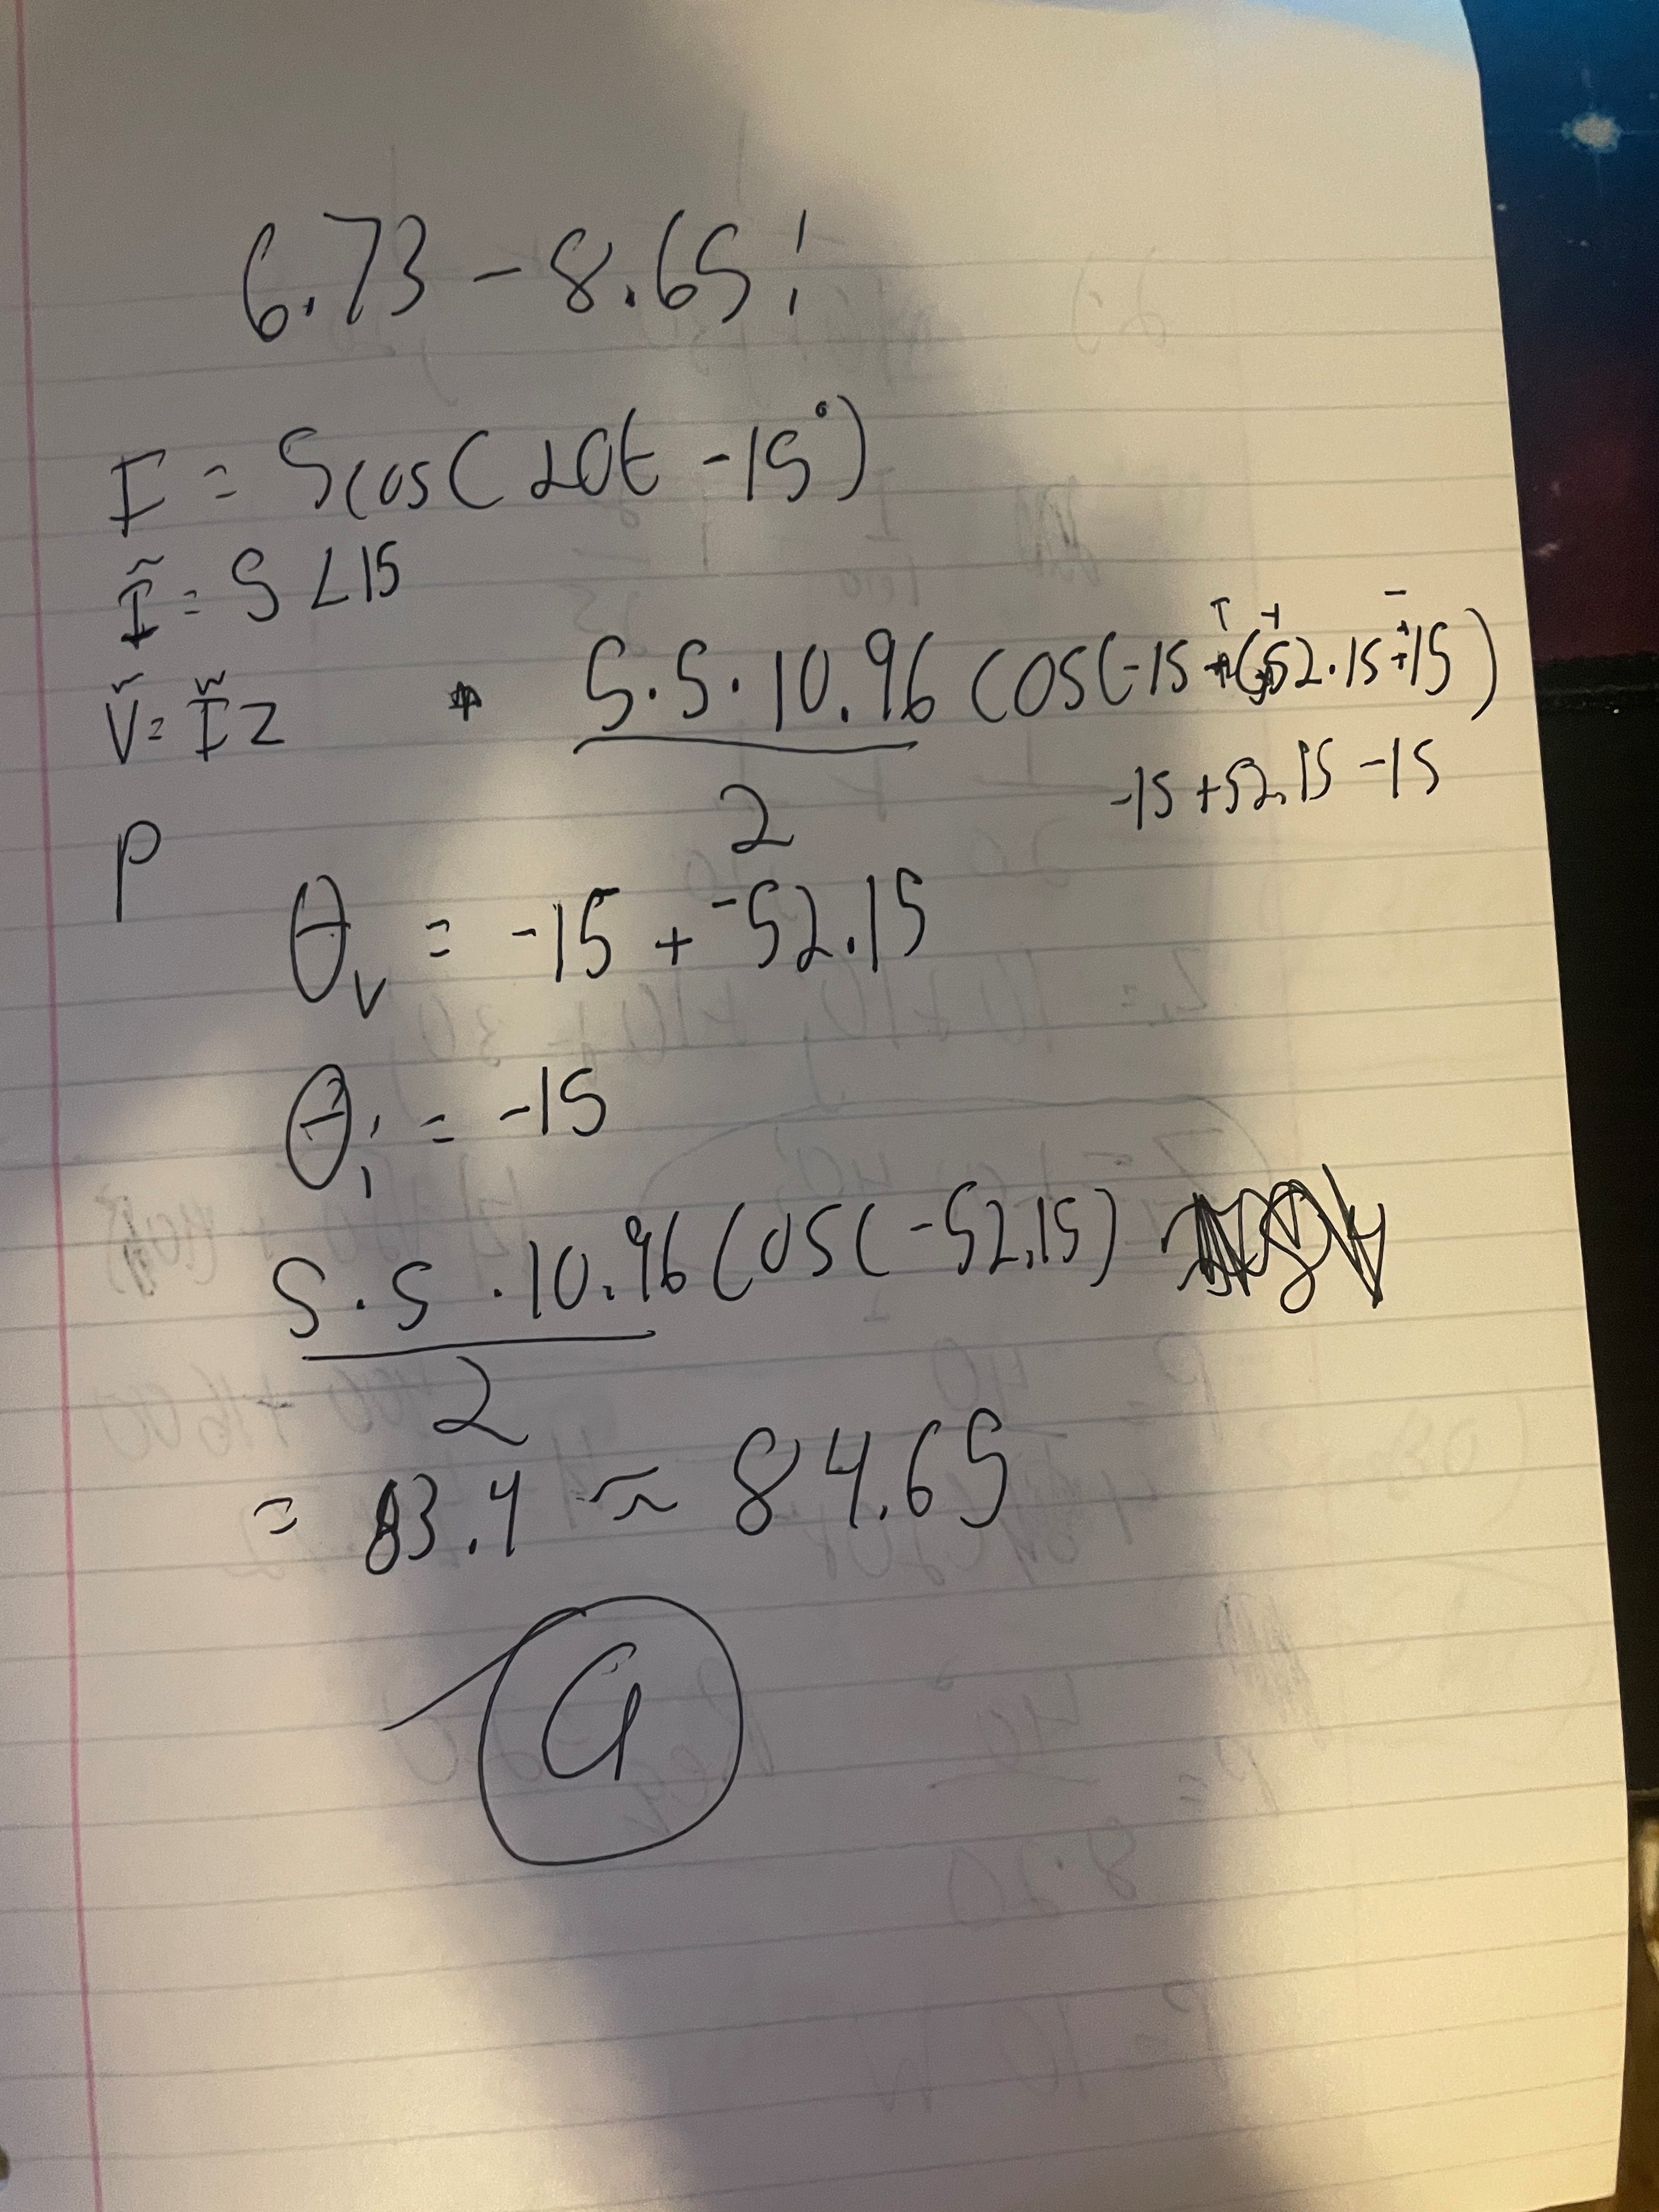 6.73 - 8.65i
I = 5cos(20t - 15°)
Ĩ = 5∠15
Ṽ = ĨZ
5·5·10.96 cos(-15 + (52.15 + 15)
2
-15 + 52.15 - 15
P
θv = -15 + -52.15
θi = -15
5·5·10.96 cos(-52.15)
2
= 83.4 ≈ 84.65
a